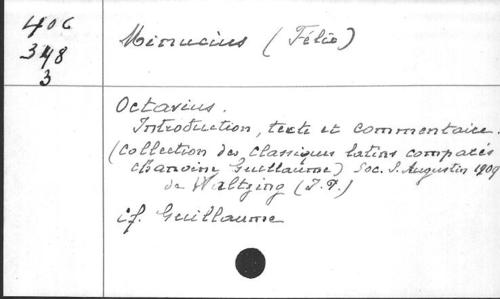 406
348
3
Minucius (Félix)
Octavius.
Introduction, texte et commentaire.
(Collection des classiques latins comparés
chanoine Guillaume) Soc. S. Augustin 1909
de Waltzing (J.P.)
cf. Guillaume